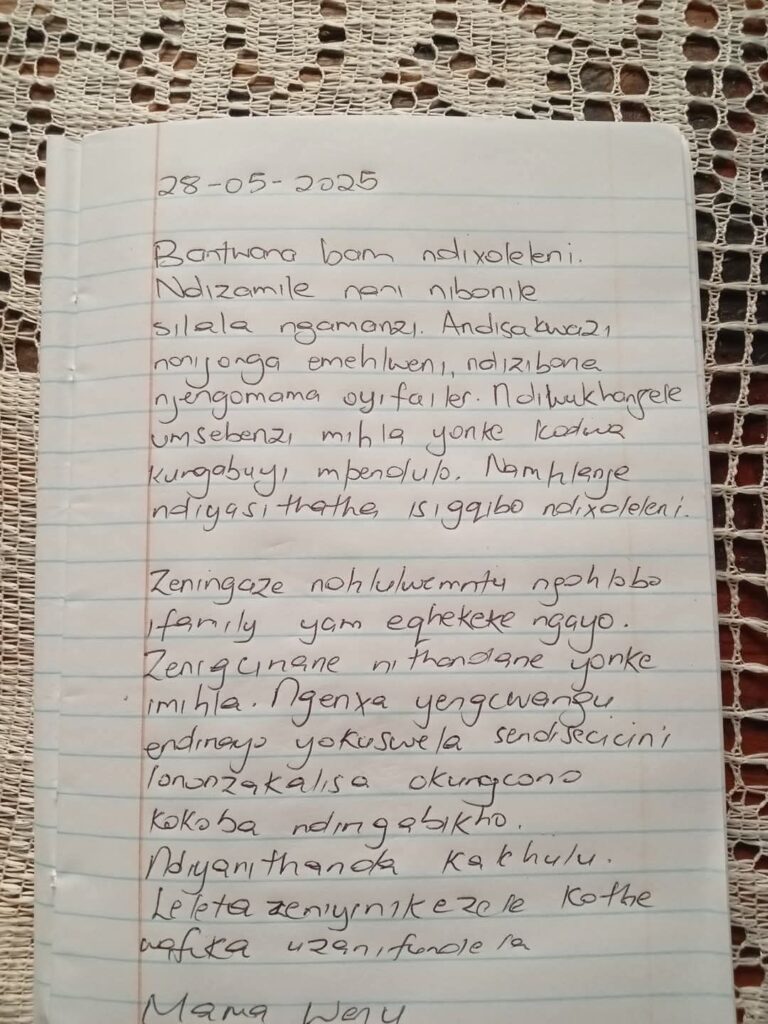 28-05-2025
Bantwana bam ndixoleleni.
Ndizamile nani nibonile
silala ngamanzi. Andisakwazi
nonijonga emehlweni, ndizibona
njengomama oyifailer. Ndiwukhangele
umsebenzi mihla yonke kodwa
kungabuyi mpendulo. Namhlanje
ndiyasithatha isigqibo ndixoleleni.
Zeningaze nohlulwemntu ngohlobo
ifamily yam eqhekeke ngayo.
Zenigcinane nithandane yonke
imihla. Ngenxa yengcwangu
endinayo yokuswela sendisecicini
lononzakalisa okungcono
kokoba ndingabikho.
Ndiyanithanda kakhulu.
Leleta zeniyinikezele kothe
wafika uzanifundela
Mama Wenu